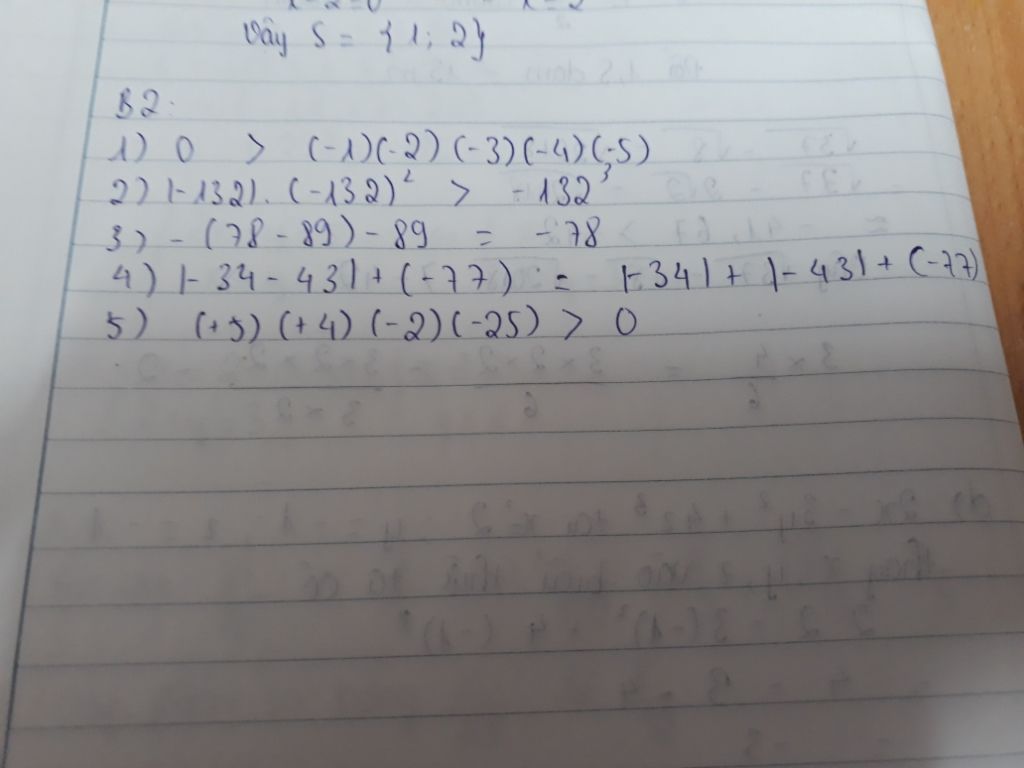 x-2=0 x=2
Vậy S = {1; 2}
B2:
1) 0 > (-1)(-2)(-3)(-4)(-5)
2) |-132|. (-132)² > -132³
3) - (78 - 89) - 89 = -78
4) |-34 - 43| + (-77) = |-34| + |-43| + (-77)
5) (+5)(+4)(-2)(-25) > 0